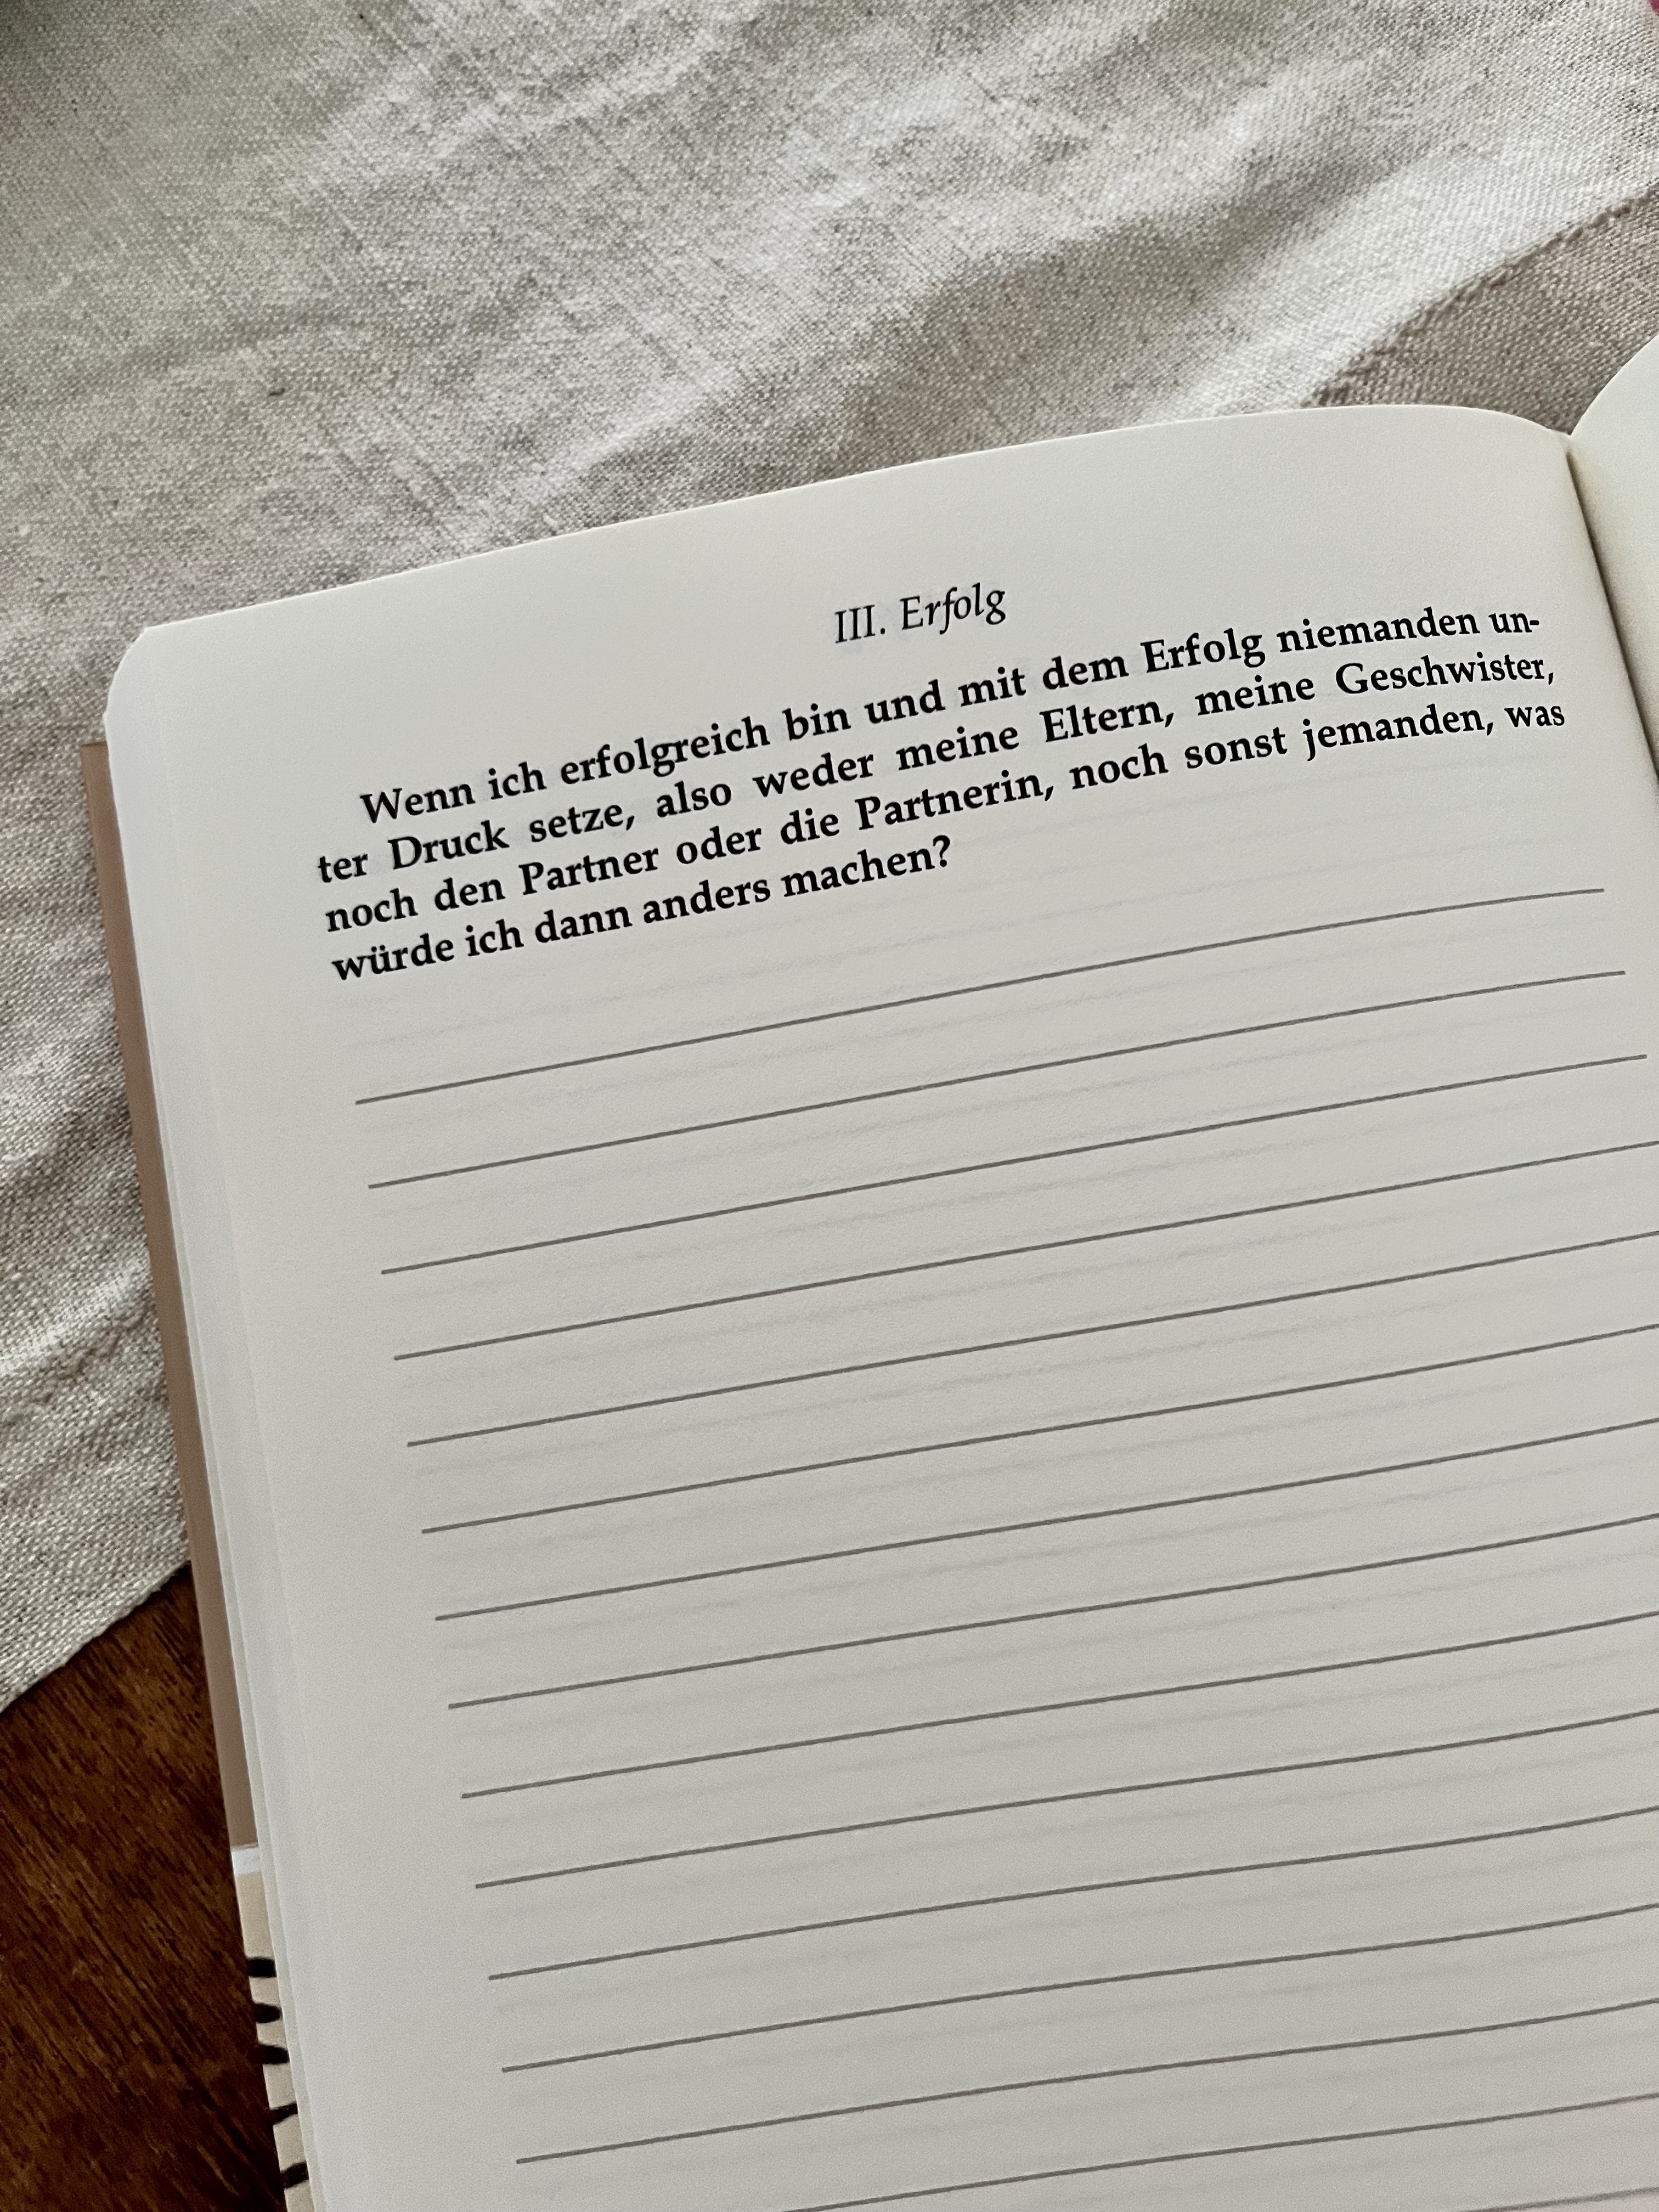 III. Erfolg
Wenn ich erfolgreich bin und mit dem Erfolg niemanden un-
ter Druck setze, also weder meine Eltern, meine Geschwister,
noch den Partner oder die Partnerin, noch sonst jemanden, was
würde ich dann anders machen?